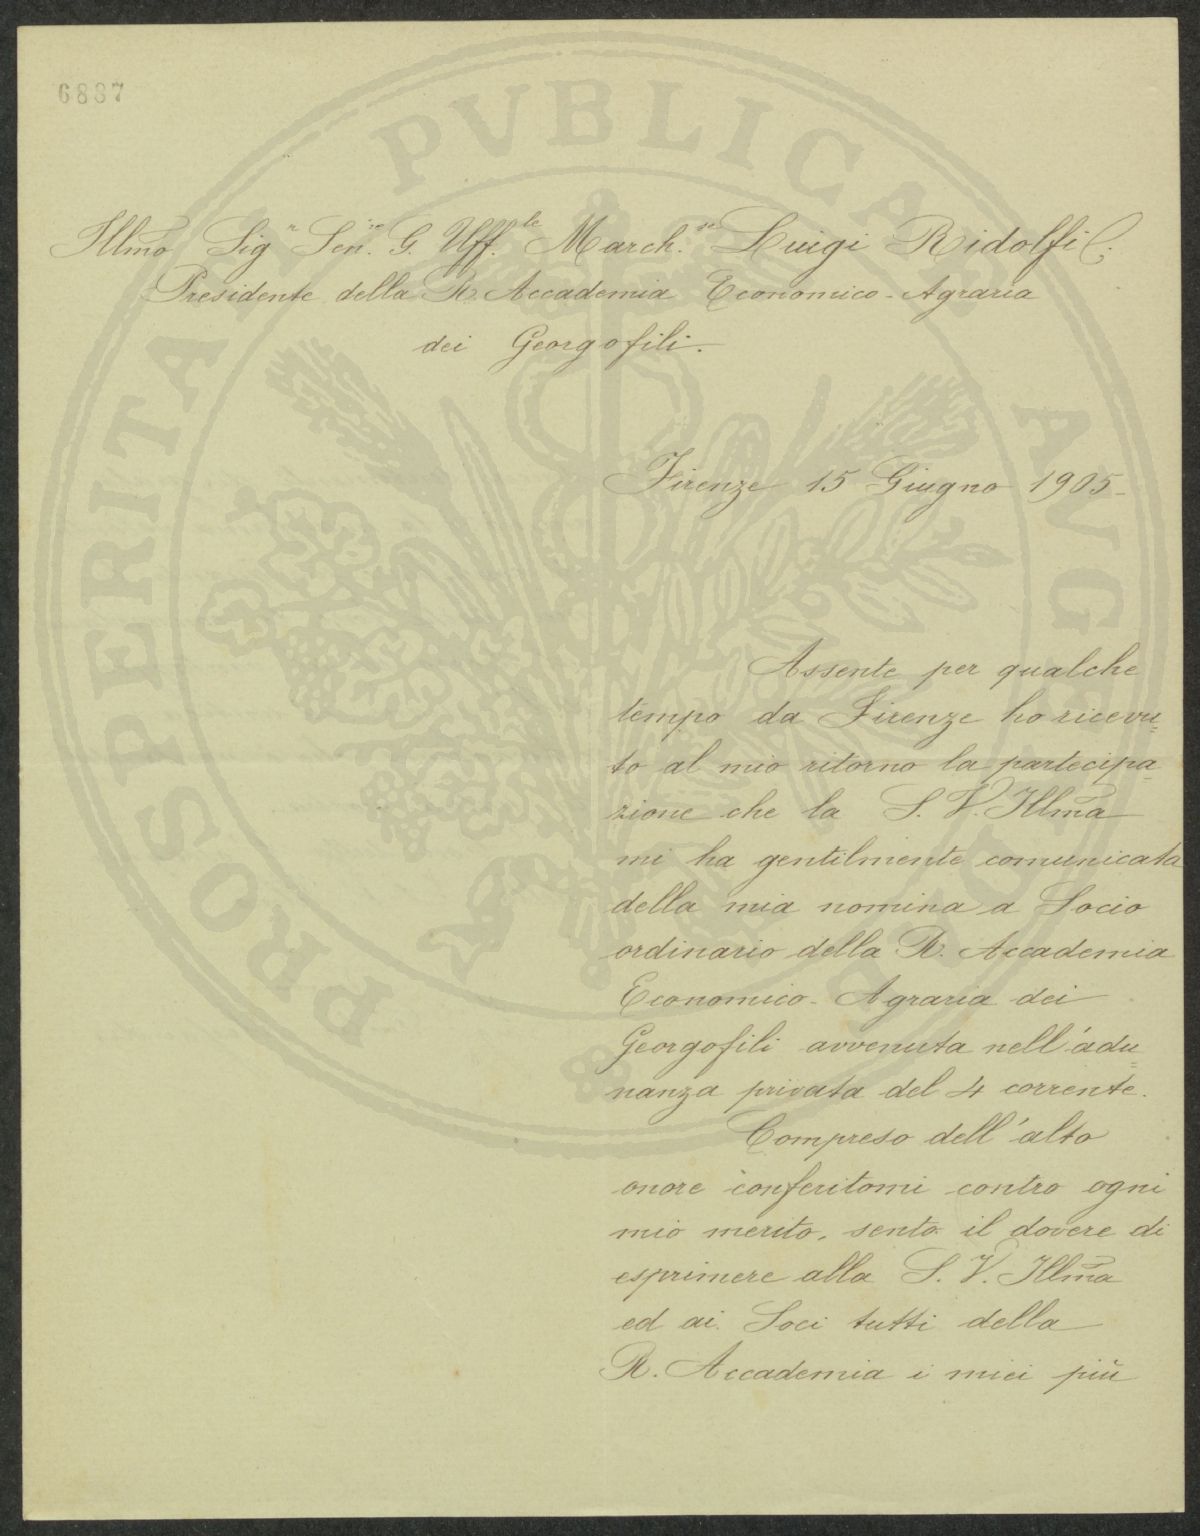 6887
Illmo Sig.r Sen.re G. Uff.le March.se Luigi Ridolfi
Presidente della R. Accademia Economico-Agraria
dei Georgofili.
Firenze 15 Giugno 1905-
Assente per qualche
tempo da Firenze ho ricevu=
to al mio ritorno la partecipa=
zione che la S. V. Illma
mi ha gentilmente comunicata
della mia nomina a Socio
ordinario della R. Accademia
Economico-Agraria dei
Georgofili avvenuta nell'adu=
nanza privata del 4 corrente.
Compreso dell'alto
onore conferitomi contro ogni
mio merito, sento il dovere di
esprimere alla S. V. Illma
ed ai Soci tutti della
R. Accademia i miei più
PROSPERITATI PVBLICAE AVGENDAE